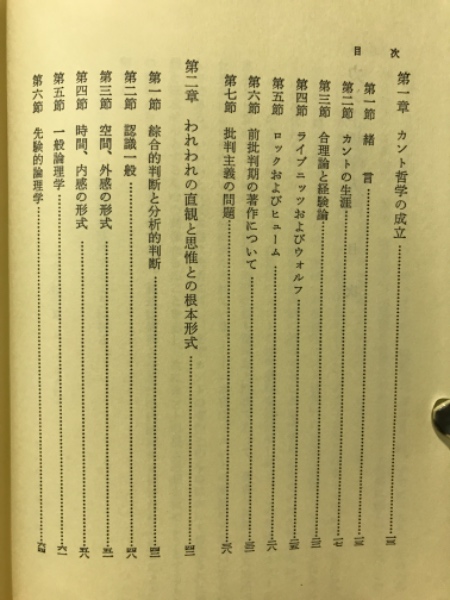 目次
第一章 カント哲学の成立
第一節 緒言
第二節 カントの生涯
第三節 合理論と経験論
第四節 ライプニッツおよびウォルフ
第五節 ロックおよびヒューム
第六節 前批判期の著作について
第七節 批判主義の問題
第二章 われわれの直観と思惟との根本形式
第一節 綜合的判断と分析的判断
第二節 認識一般
第三節 空間、外感の形式
第四節 時間、内感の形式
第五節 一般論理学
第六節 先験的論理学